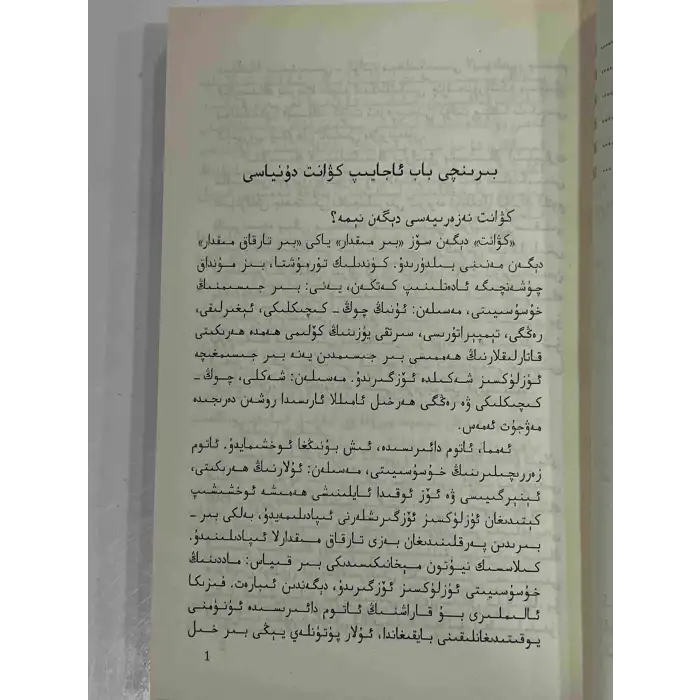 بىرىنچى باب ئاجايىپ كۋانت دۇنياسى
كۋانت نەزەرىيەسى دېگەن نېمە؟
«كۋانت» دېگەن سۆز «بىر مىقدار» ياكى «بىر تارقاق مىقدار»
دېگەن مەنىنى بىلدۈرىدۇ. كۈندىلىك تۇرمۇشتا، بىز مۇنداق
چۈشەنچىگە ئادەتلىنىپ كەتكەن، يەنى: بىر جىسىمنىڭ
خۇسۇسىيىتى، مەسىلەن: ئۇنىڭ چوڭ ـ كىچىكلىكى، ئېغىرلىقى،
رەڭگى، تېمپېراتۇرىسى، سىرتقى يۈزىنىڭ كۆلىمى ھەمدە ھەرىكىتى
قاتارلىقلارنىڭ ھەممىسى بىر جىسىمدىن يەنە بىر جىسىمغىچە
ئۈزلۈكسىز شەكىلدە ئۆزگىرىدۇ. مەسىلەن: شەكلى، چوڭ ـ
كىچىكلىكى ۋە رەڭگى ھەرخىل ئامىللا ئارىسىدا روشەن دەرىجىدە
مەۋجۇت ئەمەس.
ئەمما، ئاتوم دائىرىسىدە، ئىش بۇنىڭغا ئوخشىمايدۇ. ئاتوم
زەررىچىلىرىنىڭ خۇسۇسىيىتى، مەسىلەن: ئۇلارنىڭ ھەرىكىتى،
ئېنېرگىيىسى ۋە ئۆز ئوقىدا ئايلىنىشى ھەمىشە ئوخشىشىپ
كېتىدىغان ئۈزلۈكسىز ئۆزگىرىشلەرنى ئىپادىلىمەيدۇ، بەلكى بىر ـ
بىرىدىن پەرقلىنىدىغان بەزى تارقاق مىقدارلا ئىپادىلىنىدۇ.
كىلاسسىك نيۇتون مېخانىكىسىدىكى بىر قىياس: ماددىنىڭ
خۇسۇسىيىتى ئۈزلۈكسىز ئۆزگىرىدۇ، دېگەندىن ئىبارەت. فىزىكا
ئالىملىرى بۇ قاراشنىڭ ئاتوم دائىرىسىدە ئۈنۈمىنى
يوقىتىدىغانلىقىنى بايقىغاندا، ئۇلار پۈتۈنلەي يېڭى بىر خىل
1